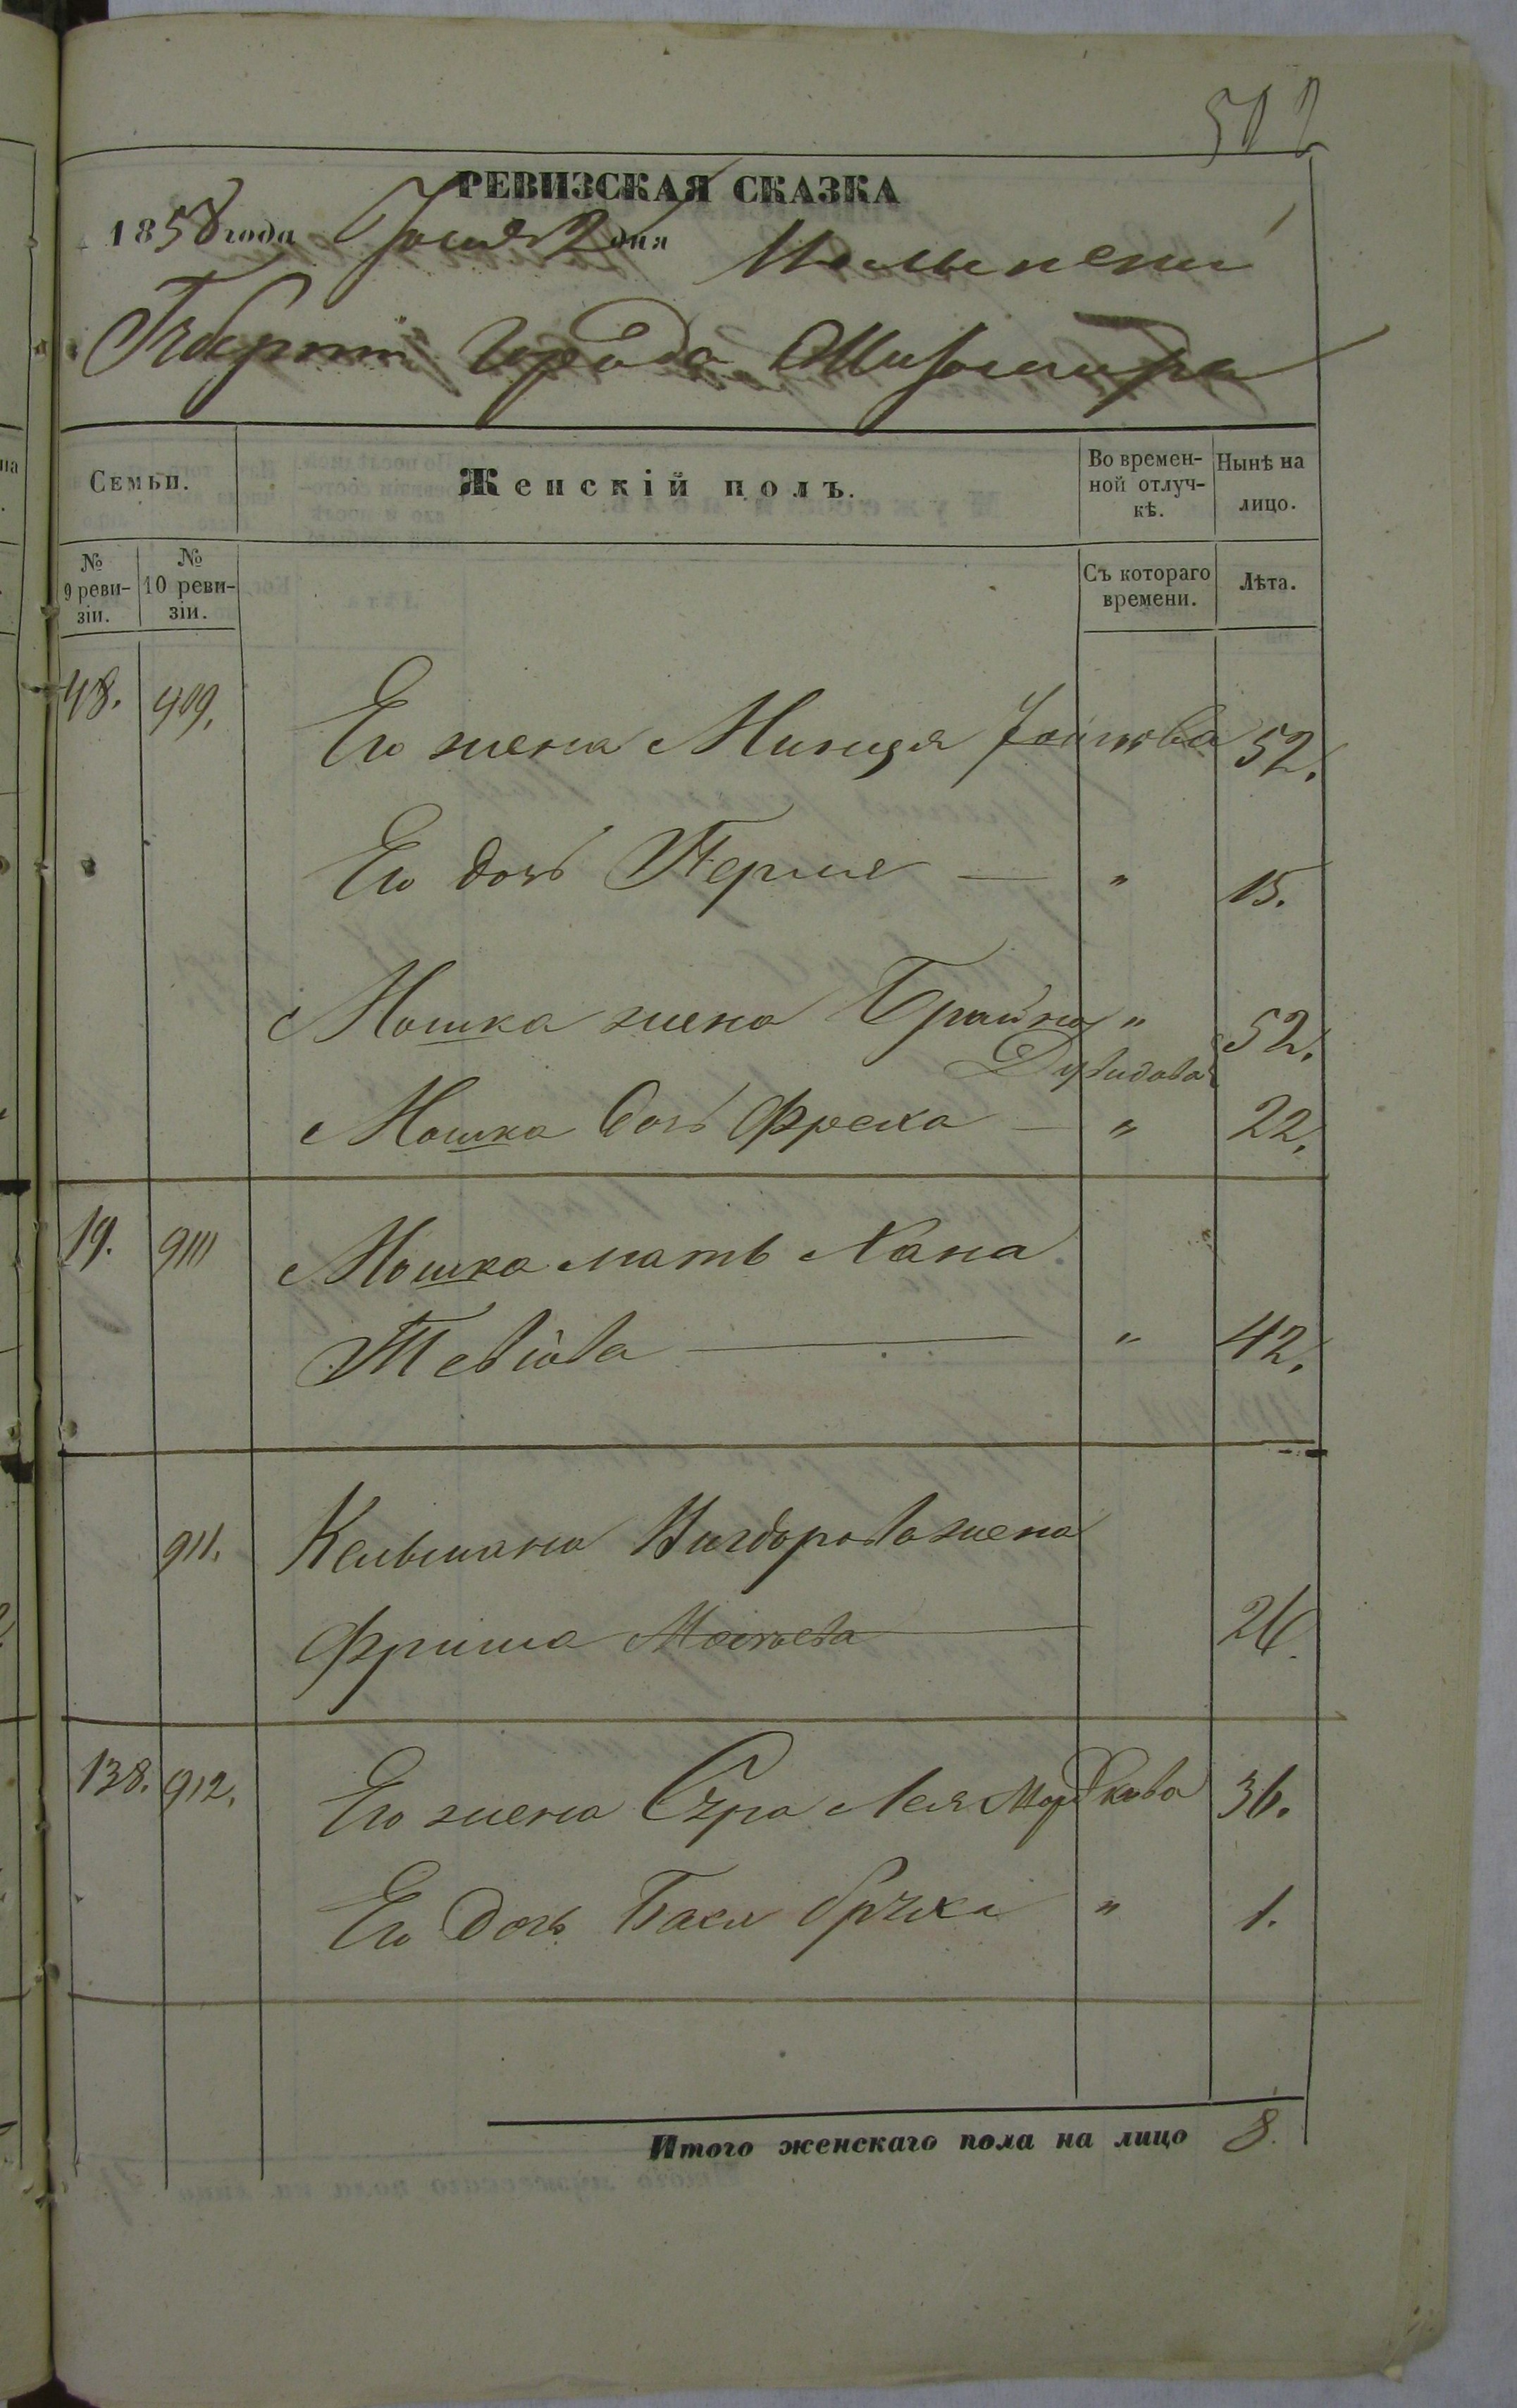 502
РЕВИЗСКАЯ СКАЗКА
1858 года Іюня 2 дня Волынской
Губерніи Города Житомира
Семьи.
Женскій полъ.
Во времен-
ной отлуч-
кѣ.
Нынѣ на
лицо.
№
9 реви-
зіи.
№
10 реви-
зіи.
Съ котораго
времени.
Лѣта.
48. 909. Его жена Минця 52.
Его дочь Перля — " 15.
Мошка жена Брайна " 52.
Давидова
Мошка дочь Фрейха — " 22.
19. 910 Мошка мать Хана
Тевіова — " 42.
911. Кельмана Вигдорова жена
Фрима — 26.
138. 912. Его жена Сура Лея Мордкова 36.
Его дочь Бася " 1.
Итого женскаго пола на лицо 8.